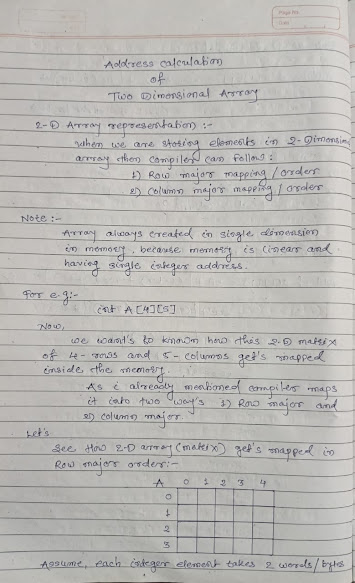 Page No.
Date
Address calculation
of
Two Dimensional Array
2-D Array representation :-
When we are storing elements in 2-Dimension
array then compiler can follow :
1) Row major mapping / order
2) Column major mapping / order
Note :-
Array always created in single dimension
in memory, because memory is linear and
having single integer address.
for e.g :-
int A [4][5]
Now,
we want's to known how this 2-D matrix
of 4-rows and 5-columns get's mapped
inside the memory.
As i already mentioned compiler maps
it into two way's 1) Row major and
2) column major.
Let's
see How 2-D array (matrix) get's mapped in
Row major order :-
A 0 1 2 3 4
0
1
2
3
Assume, each integer element takes 2 words/bytes